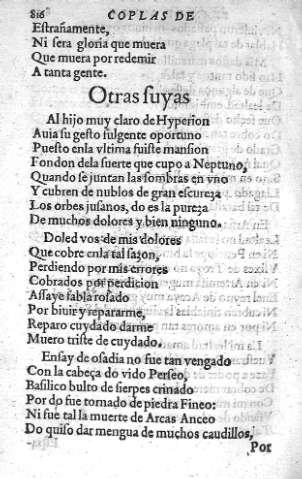 816 COPLAS DE
Estrañamente,
Ni sera gloria que muera
Que muera por redemir
A tanta gente.
Otras suyas
Al hijo muy claro de Hyperion
Auia su gesto fulgente oportuno
Puesto en la vltima fuiste mansion
Fondon de la suerte que cupo a Neptuno,
Quando se juntan las sombras en vno
Y cubren de nublos de gran escureza
Los orbes jusanos, do es la pureza
De muchos dolores y bien ninguno.
Doled vos de mis dolores
Que cobre en la tal sazon,
Perdiendo por mis errores
Cobrados por perdicion
Assaye fabla rosado
Por biuir y repararme,
Reparo cuydado darme
Muero triste de cuydado.
Ensay de osadia no fue tan vengado
Con la cabeça do vido Perseo,
Basilico bulto de sierpes crinado
Por do fue tornado de piedra Fineo:
Ni fue tal la muerte de Arcas Anceo
Do quiso dar mengua de muchos caudillos,
Por